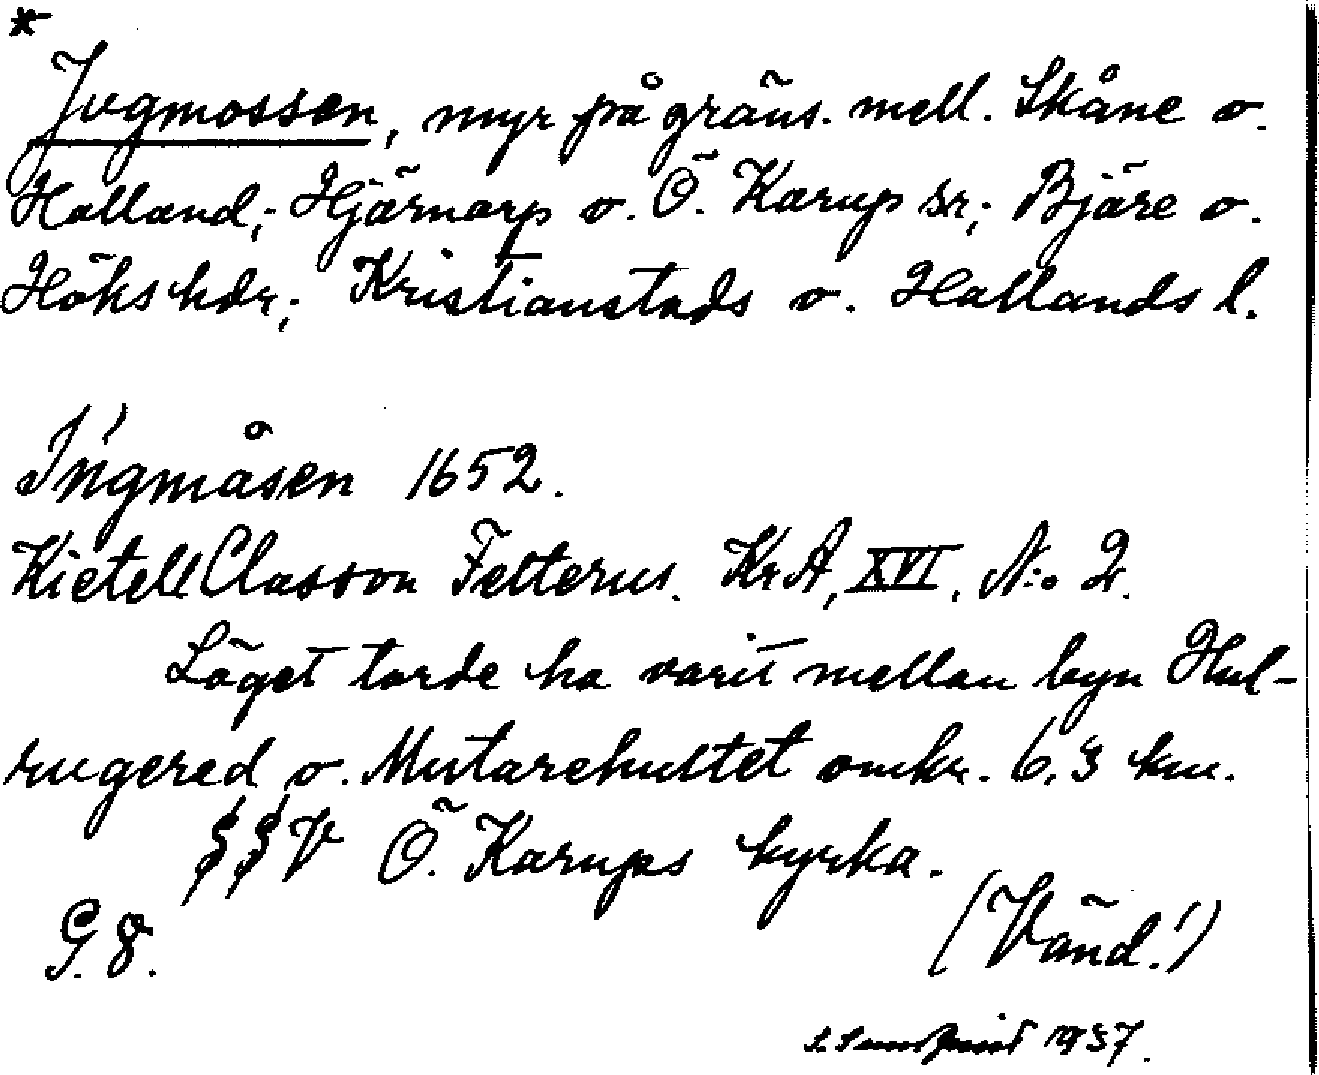 *
Jugmossen, myr på gräns. mell. Skåne o.
Halland; Hjärnarp o. Ö. Karup sr; Bjäre o.
Höks hdr; Kristianstads o. Hallands l.
Ingmåsen 1652.
Kietell Classon Felterus. KrA, XVI, N:o 2.
Läget torde ha varit mellan byn Hul-
rugered o. Mutarehultet omkr. 6,3 km.
SSV Ö. Karups kyrka.
G. 8.
(Vänd!)
1937.